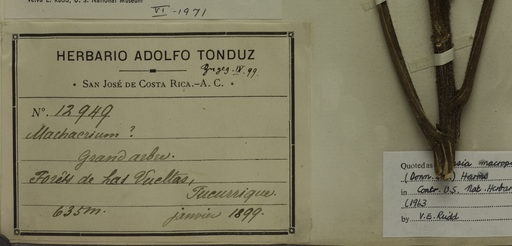 Velva E. Rudd, U. S. National Museum
VI-1971
HERBARIO ADOLFO TONDUZ
SAN JOSÉ DE COSTA RICA.–A. C.
Nº. 12949
Machaerium?
Grand arbre.
Forêts de Las Vueltas,
Tucurrique.
635m. janvier 1899.
Quoted as
(Donn. Harms
in Contr. U.S. Nat. Herbar
(1963
by V.E. Rudd